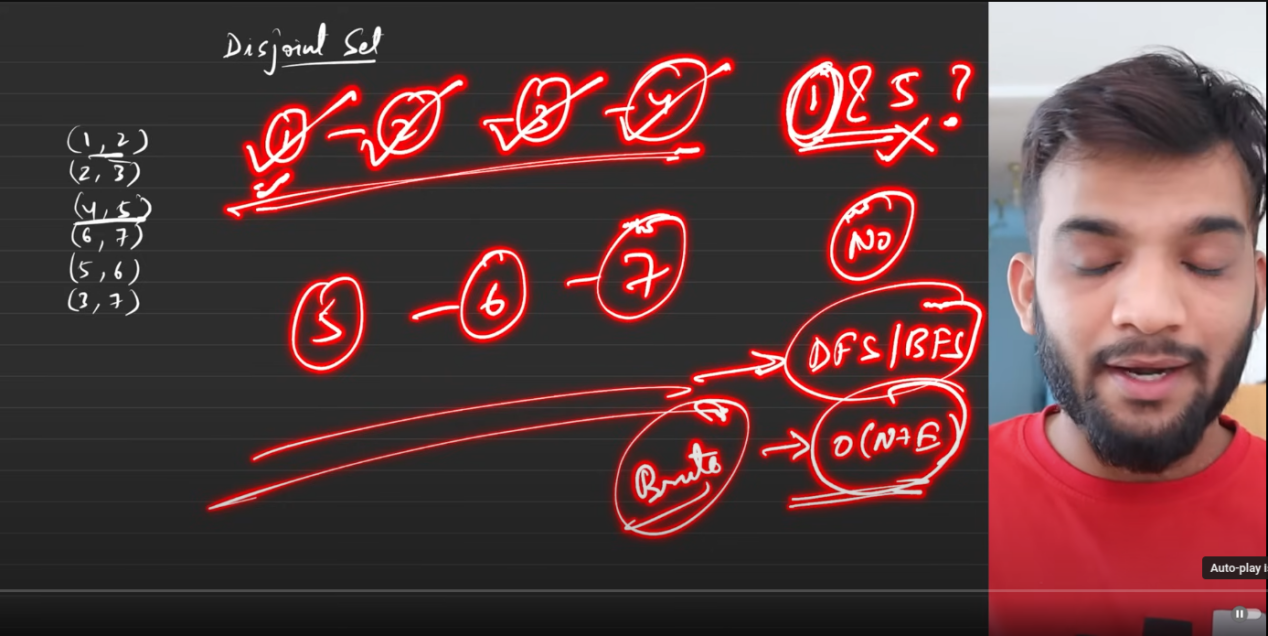 Disjoint Set
(1, 2)
(2, 3)
(4, 5)
(6, 7)
(5, 6)
(3, 7)
1 - 2 3 - 4
1 & 5 ?
No
5 - 6 - 7
DFS/BFS
Brute → O(N+E)
Auto-play i